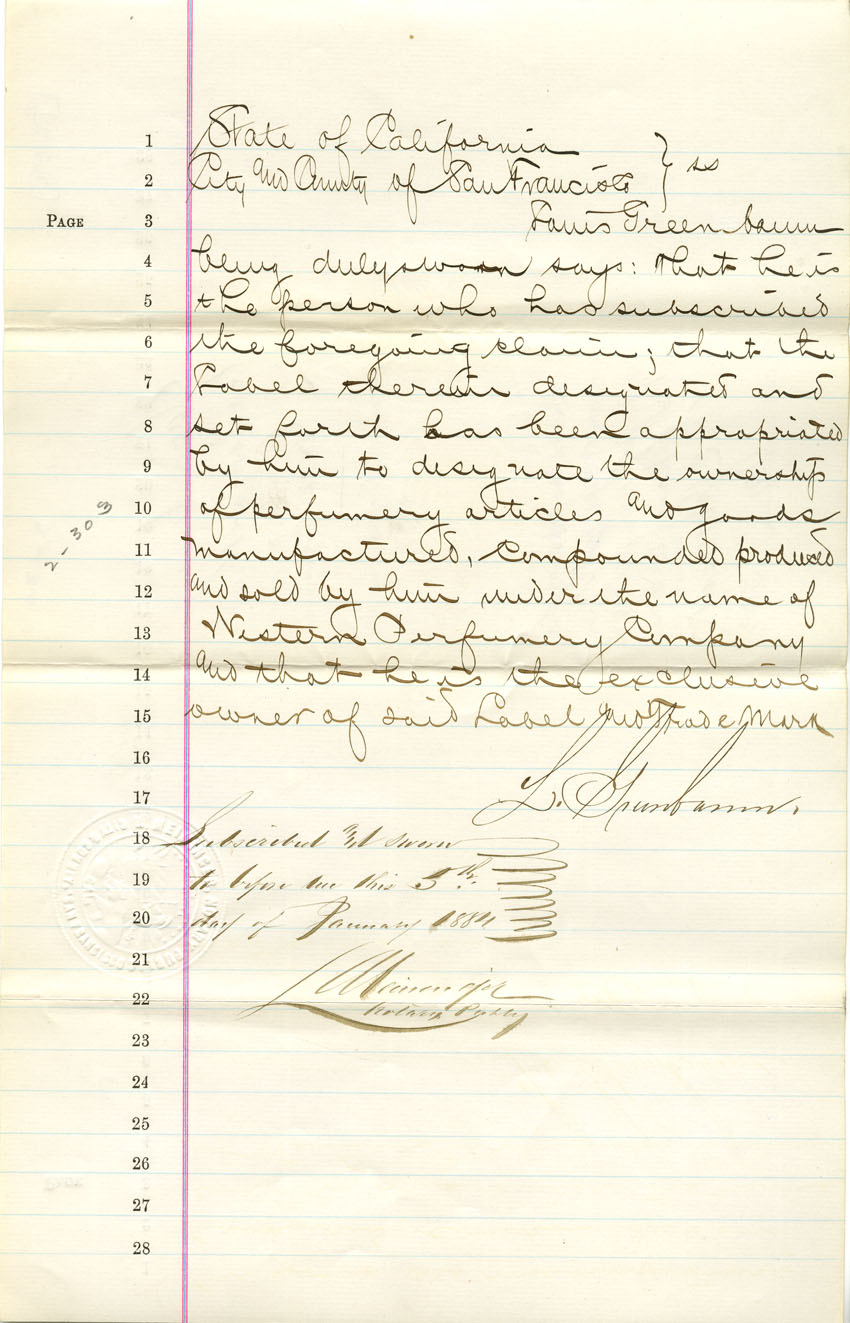 1 State of California
2 City and County of San Francisco } ss
PAGE 3 Louis Greenbaum
4 being duly sworn says: that he is
5 the person who has subscribed
6 the foregoing claim; that the
7 Label therein designated and
8 set forth has been appropriated
9 by him to designate the ownership
10 of perfumery articles and goods
2-303
11 manufactured, compounded produced
12 and sold by him under the name of
13 Western Perfumery Company
14 and that he is the exclusive
15 owner of said Label and Trade Mark
16
17 L. Greenbaum.
18 Subscribed and sworn
19 to before me this 5th
20 day of January 1884
21
22 Notary Public
23
24
25
26
27
28